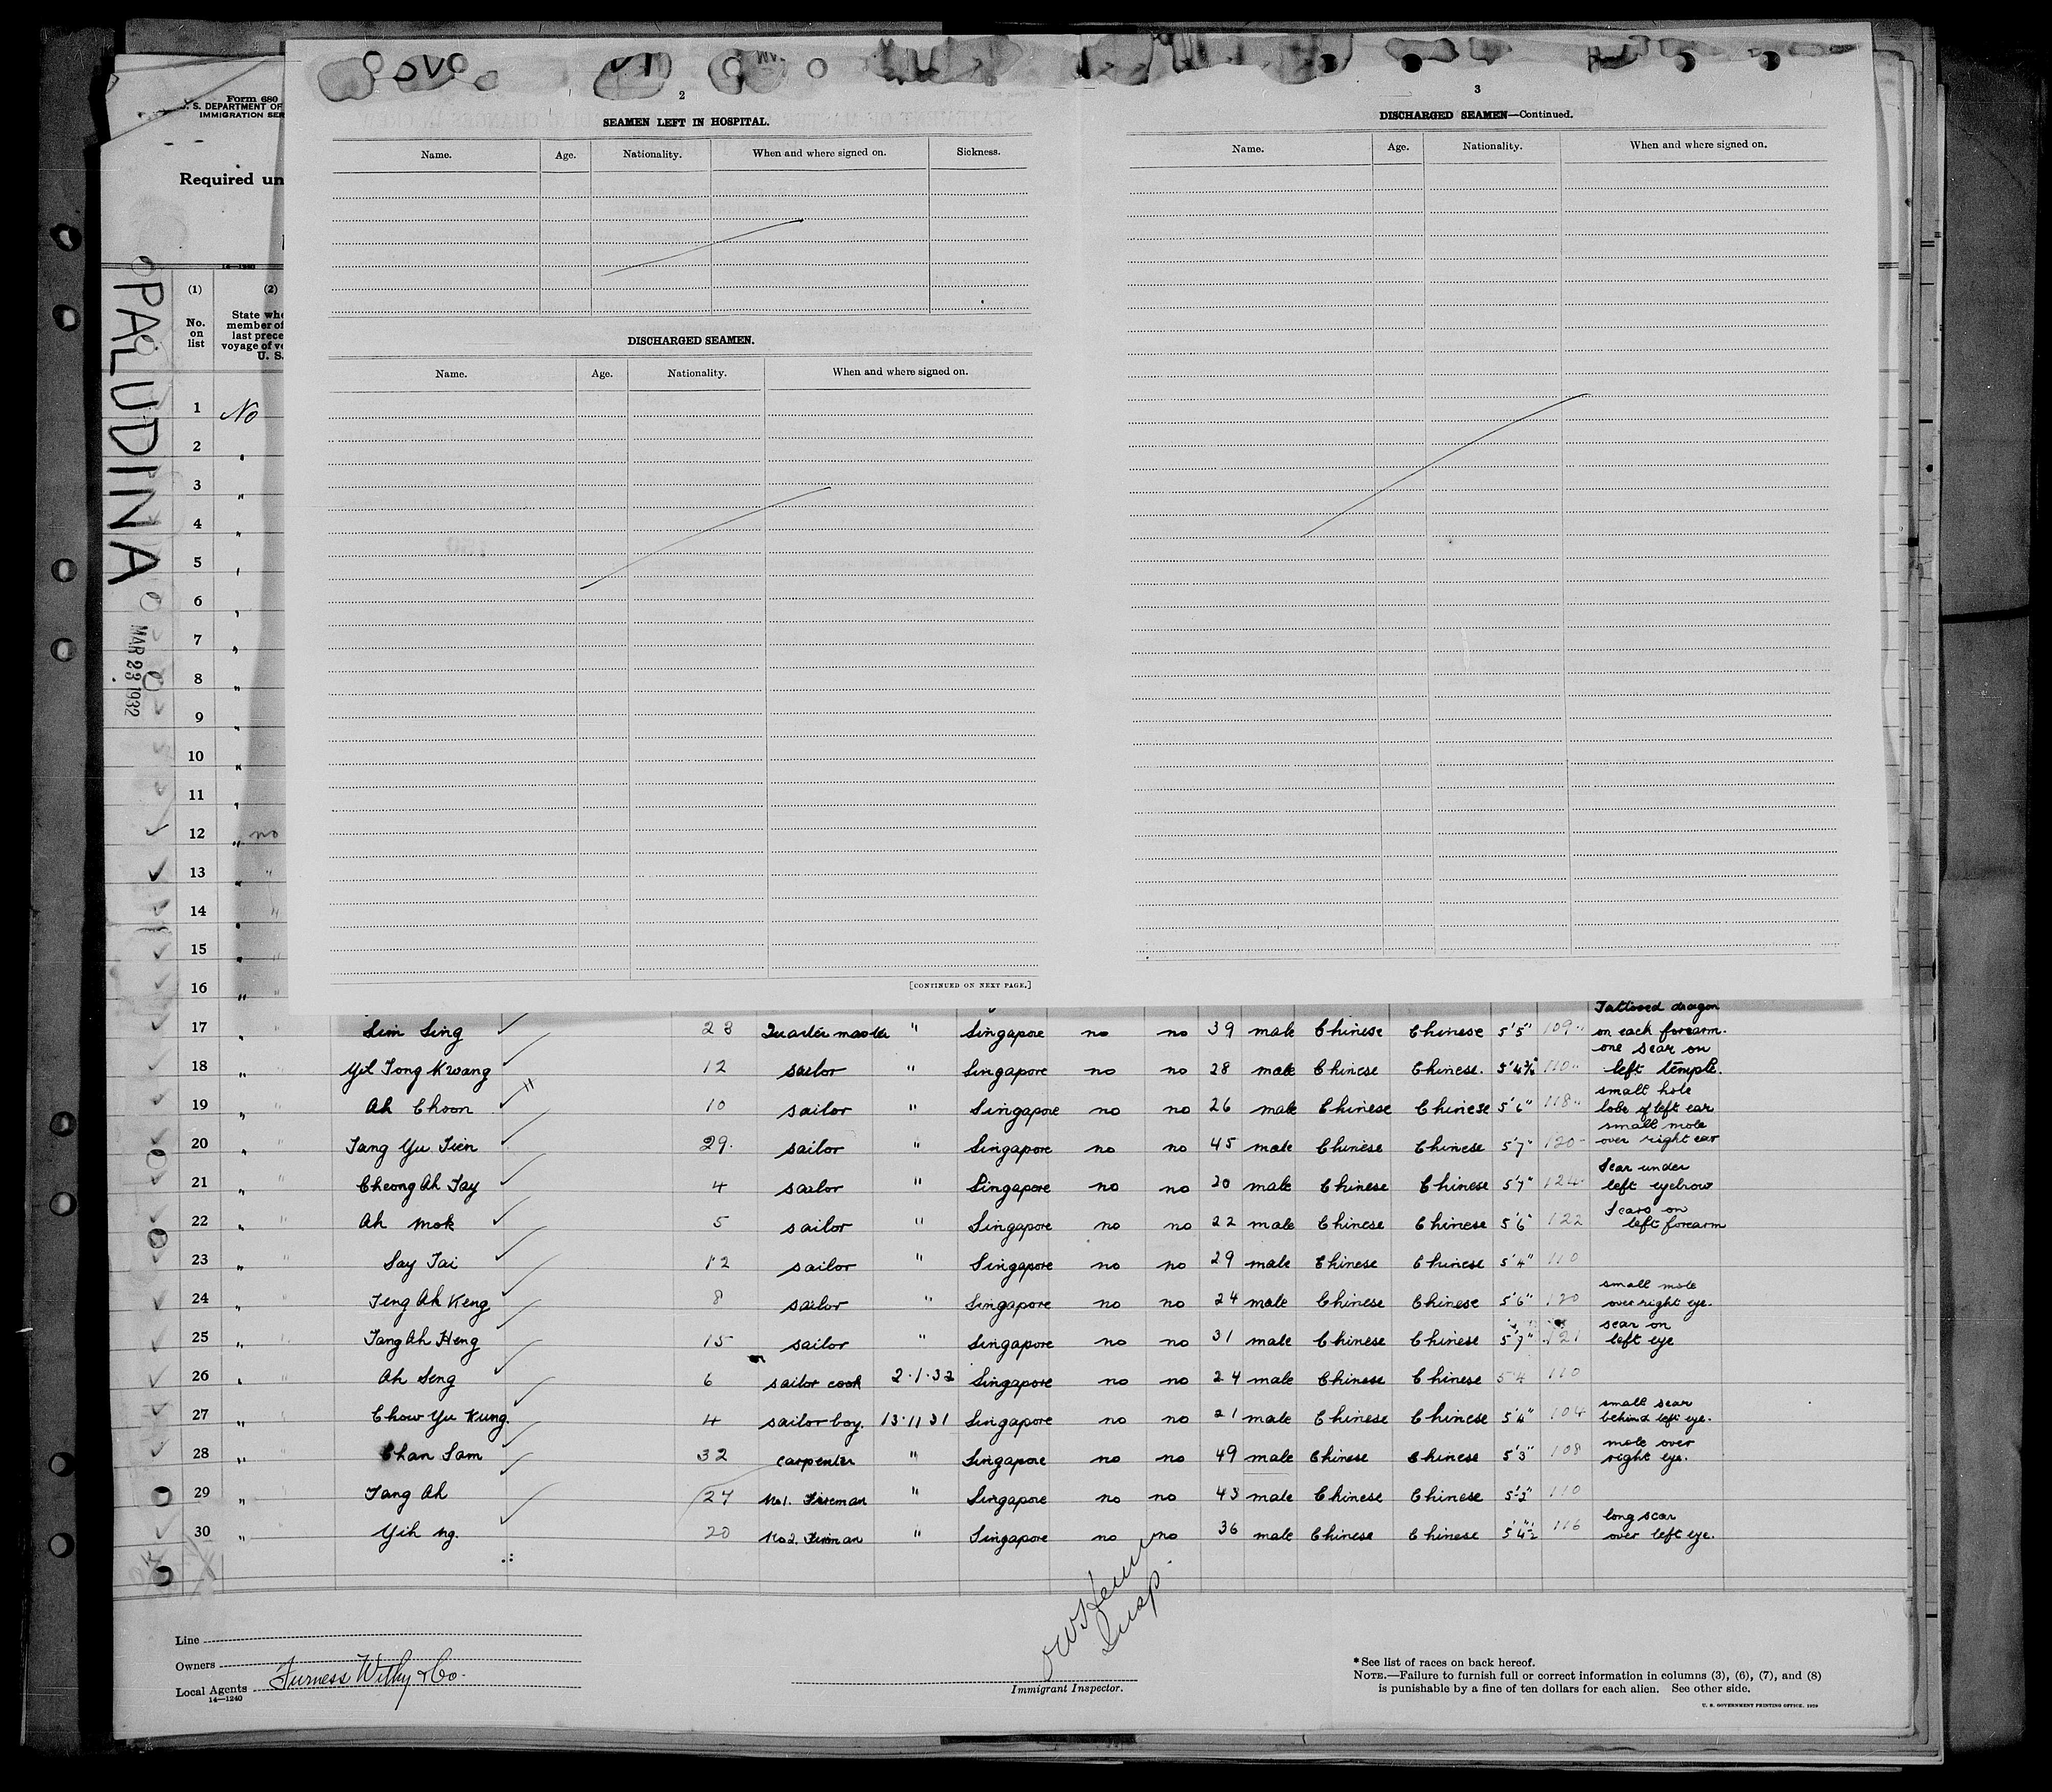 Form 680
U. S. DEPARTMENT OF
IMMIGRATION SER
Required un
14—1240
PALUDINA
MAR 23 1932
(1) (2)
No. on list
State whe
member of
last prece
voyage of ve
U. S.
1 No
2 "
3 "
4 "
5 "
6 "
7 "
8 "
9 "
10 "
11 "
12 " no
13 " "
14 " "
15 " "
16 " "
2
SEAMEN LEFT IN HOSPITAL.
Name. Age. Nationality. When and where signed on. Sickness.
DISCHARGED SEAMEN.
Name. Age. Nationality. When and where signed on.
[CONTINUED ON NEXT PAGE.]
3
DISCHARGED SEAMEN—Continued.
Name. Age. Nationality. When and where signed on.
17 " " Sim Sing 23 Quarter master " Singapore no no 39 male Chinese Chinese 5'5" 109 Tattooed dragon on each forearm.
18 " " Yit Tong Kwang 12 sailor " Singapore no no 28 male Chinese Chinese. 110 one scar on left temple.
19 " " Ah Choon 10 sailor " Singapore no no 26 male Chinese Chinese 5'6" 118 small hole lobe of left ear
20 " " Tang Yu Tien 29 sailor " Singapore no no 45 male Chinese Chinese 5'7" 120 small mole over right ear
21 " " Cheong Ah Tay 4 sailor " Singapore no no 20 male Chinese Chinese 5'7" 124 Scar under left eyebrow
22 " " Ah Mok 5 sailor " Singapore no no 22 male Chinese Chinese 5'6" 122 Scars on left forearm
23 " " Say Tai 12 sailor " Singapore no no 29 male Chinese Chinese 5'4" 110
24 " " Teng Ah Keng 8 sailor " Singapore no no 24 male Chinese Chinese 5'6" 120 small mole over right eye.
25 " " Tang Ah Heng 15 sailor " Singapore no no 31 male Chinese Chinese 5'7" 121 scar on left eye
26 " " Ah Seng 6 sailor cook 2.1.32 Singapore no no 24 male Chinese Chinese 5 4 110
27 " " Chow Yu Kung. 4 sailor boy. 13.11.31 Singapore no no 21 male Chinese Chinese 5'4" 104 small scar behind left eye.
28 " " Chan Sam 32 carpenter " Singapore no no 49 male Chinese Chinese 5'3" 108 mole over right eye.
29 " " Tang Ah 27 No1. Fireman " Singapore no no 43 male Chinese Chinese 110
30 " " Yih Ng. 20 No2. Fireman " Singapore no no 36 male Chinese Chinese 5'4½" 116 long scar over left eye.
Line
Owners
Local Agents Furness Withy & Co.
14—1240
Insp.
Immigrant Inspector.
*See list of races on back hereof.
NOTE.—Failure to furnish full or correct information in columns (3), (6), (7), and (8)
is punishable by a fine of ten dollars for each alien. See other side.
U. S. GOVERNMENT PRINTING OFFICE